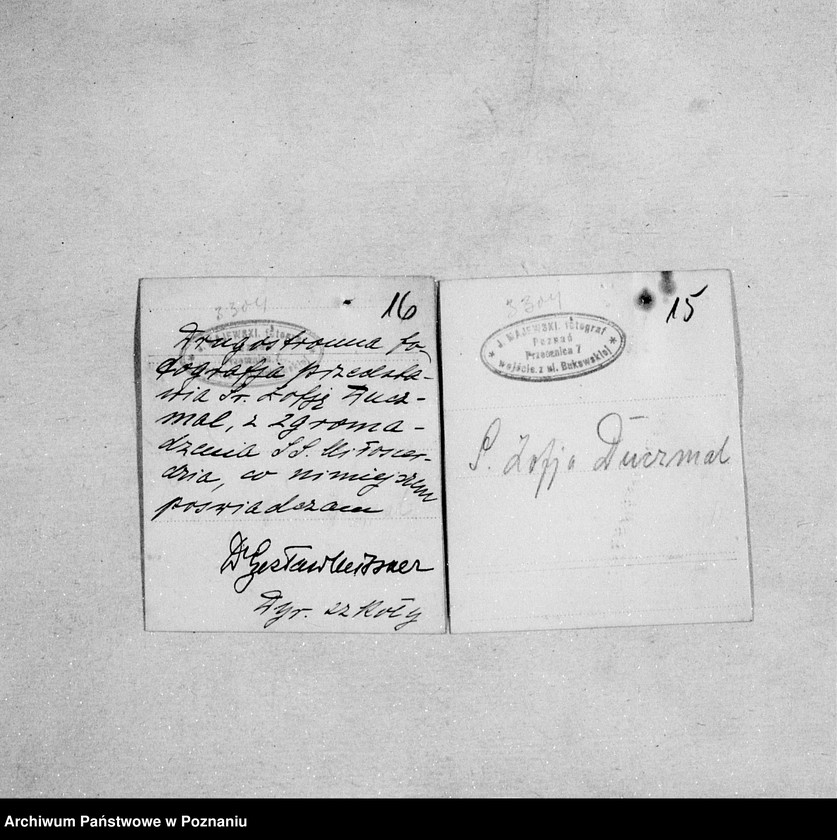 3304
16
Drugostronna fo-
tografja przedsta-
wia Sr. Zofję Ducz-
mal, z zgroma-
dzenia SS. Miłosier-
dzia, co niniejszem
poświadczam
Dr Czesław Meissner
Dyr. szkoły
3304
15
* J. MAJEWSKI, fotograf *
Poznań
Przecznica 7
wejście z ul. Bukowskiej
S. Zofja Duczmal
Archiwum Państwowe w Poznaniu